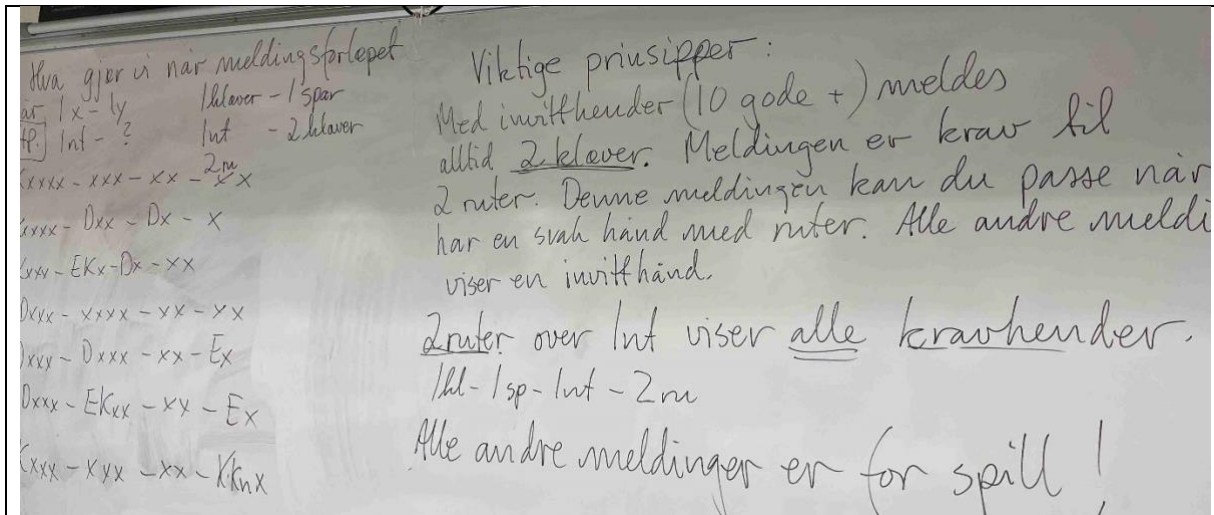 Hva gjør vi når meldingsforløpet
er 1x - 1y
1nt - ?
1kløver - 1 spar
1nt - 2 kløver
2ru
Kxxxx - xxx - xx - xx
Kxxxx - Dxx - Dx - x
Kxxx - EKx - Dx - xx
Dxxx - xxxx - xx - xx
Dxxx - Dxxx - xx - Ex
Dxxx - EKxx - xx - Ex
Kxxx - xxx - xx - KKnx
Viktige prinsipper:
Med invitthender (10 gode +) meldes
alltid 2 kløver. Meldingen er krav til
2 ruter. Denne meldingen kan du passe når
har en svak hånd med ruter. Alle andre meldi
viser en invitthånd.
2 ruter over 1nt viser alle kravhender.
1kl - 1sp - 1nt - 2ru
Alle andre meldinger er for spill!